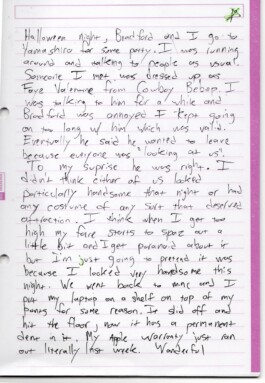 Halloween night, Bradford and I go to
Yamashiro for some party. I was running
around and talking to people as usual.
Someone I met was dressed up as
Faye Valentine from Cowboy Bebop. I
was talking to him for a while and
Bradford was annoyed I kept going
on too long w/ him which was valid.
Eventually he said he wanted to leave
because everyone was looking at us.
To my surprise he was right. I
didn't think either of us looked
particularly handsome that night or had
any costume of any sort that deserved
attraction. I think when I get too
high my face starts to spaz out a
little bit and I get paranoid about it
but I'm just going to pretend it was
because I looked very handsome this
night. We went back to mine and I
put my laptop on a shelf on top of my
pants for some reason. It slid off and
hit the floor, now it has a permanent
dent in it. My Apple warranty just ran
out literally last week. Wonderful